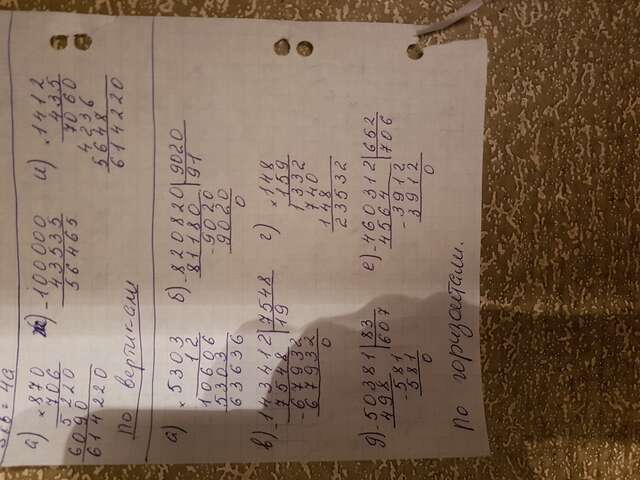 а) ×870 ж) -100000 и) ×1412
706 43535 435
5220 56465 7060
6090 4236
614220 5648
614220
по вертикали
а) ×5303 б) -820820 9020
12 81180 91
10606 -9020
5303 9020
63636 0
в) -143412 7548 г) ×148
7548 19 159
-67932 1332
67932 740
0 148
23532
д) -50381 83 е) -460312 652
498 607 4564 706
-581 -3912
581 3912
0 0
по горизонтали.